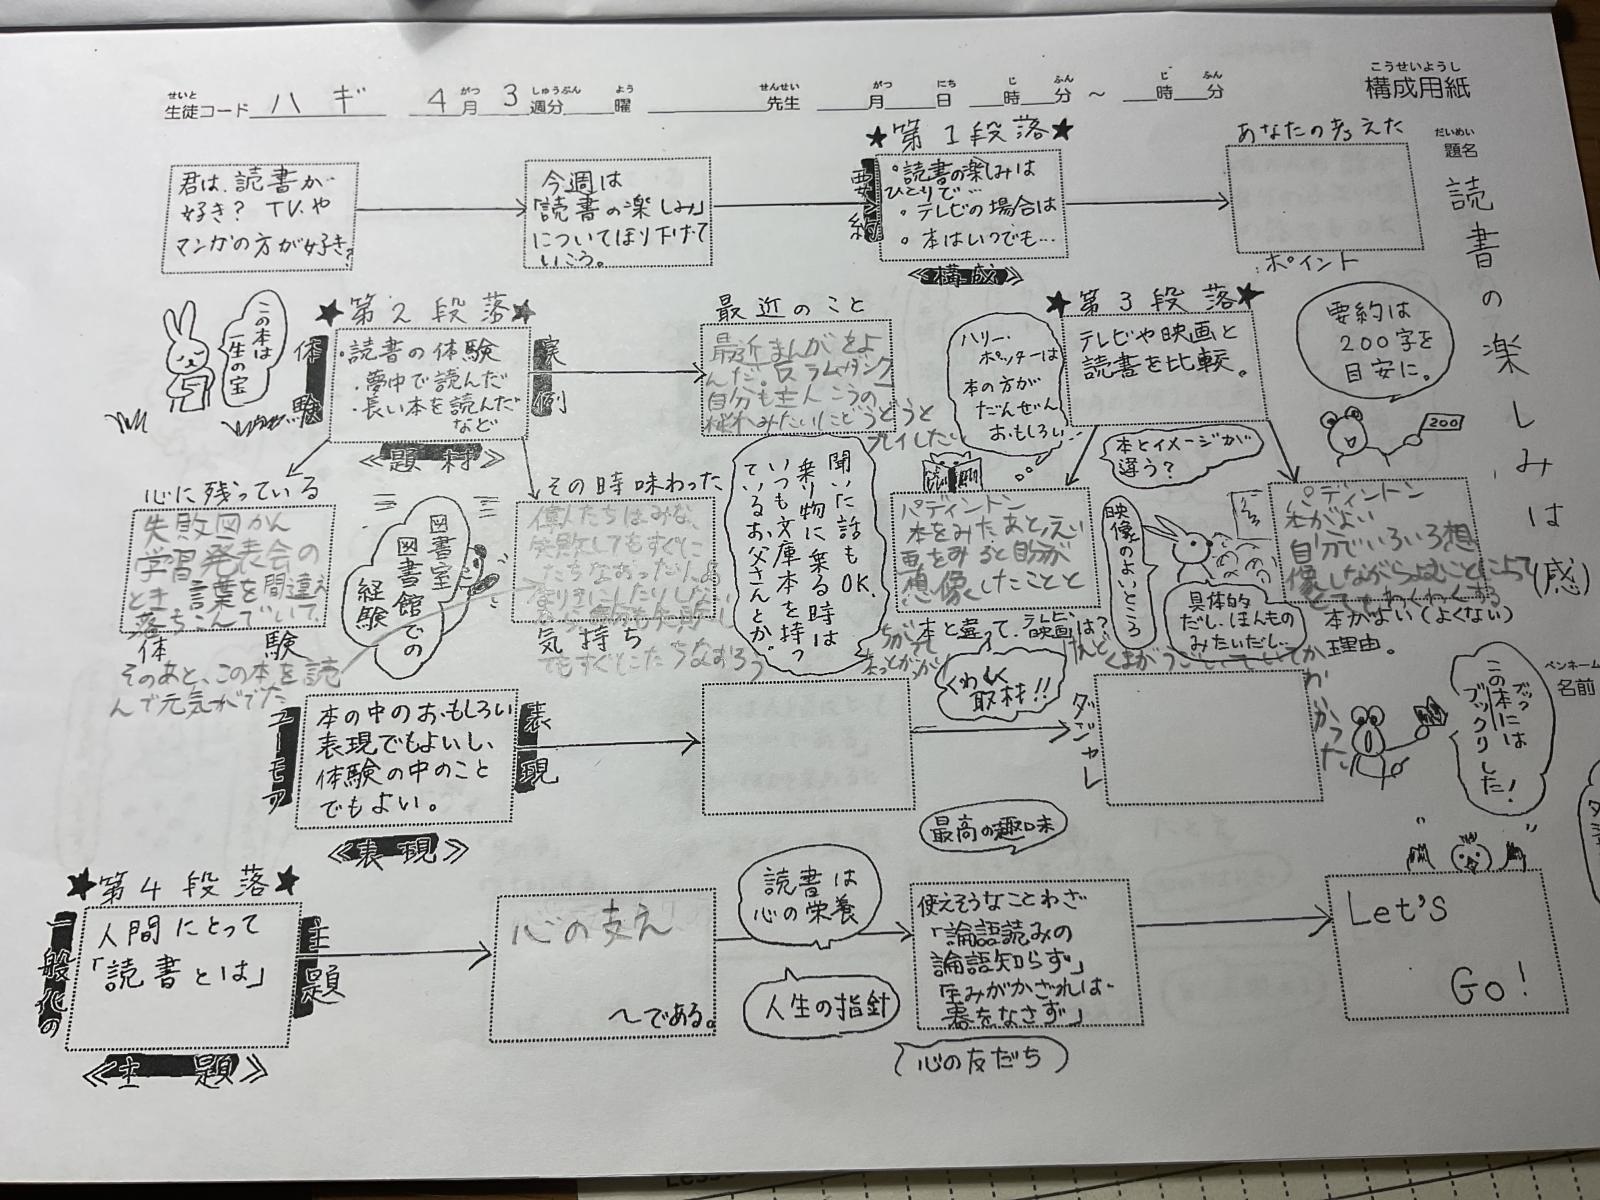 こうせいようし
構成用紙
せいと
生徒コード ハギ 4月 3週分 曜 先生 月 日 時 分 ~ 時 分
がつ しゅうぶん よう せんせい がつ にち じ ふん じ ふん
だいめい
題名
読書の楽しみは(感)
ペンネーム
名前
君は、読書が
好き? TVや
マンガの方が好き?
今週は
「読書の楽しみ」
についてほり下げて
いこう。
★第1段落★
要約
・読書の楽しみは
ひとりで…
・テレビの場合は
・本はいつでも…
≪構成≫
あなたの考えた
ポイント
この本は
一生の宝
★第2段落★
体験
・読書の体験
・夢中で読んだ
・長い本を読んだ
など
実例
≪題材≫
最近のこと
最近まんがをよ
んだ。スラムダンク
自分も主人こうの
みたいにどうどうと
プレイしたい
ハリー・
ポッターは
本の方が
だんぜん
おもしろい
★第3段落★
テレビや映画と
読書を比較。
要約は
200字を
目安に。
200
心に残っている
失敗図かん
学習発表会の
とき 言葉を間違え
落ちこんでいて、
体験
そのあと、この本を読
んで元気がでた
図書室
図書館での
経験
その時味わった
偉人たちはみな、
失敗してもすぐに
たちなおったり、
気持ち
でもすぐにたちなおろう
聞いた話もOK.
乗り物に乗る時は
いつも文庫本を持っ
ているお父さんとか。
パディントン
本をみたあと、えい
画をみると自分が
想像したことと
ちがって
本と違って、映画は?
本とイメージが
違う?
映像のよいところ
具体的
だし、ほんもの
みたいだし…
パディントン
本がよい
自分でいろいろ想
像しながらよむことによって
とてもわくわくする
本がよい(よくない)
理由。
ユーモア
本の中のおもしろい
表現でもよいし、
体験の中のこと
でもよい。
表現
≪表現≫
くわしく
取材!!
ダジャレ
この本には
ブックリした!
ブック
★第4段落★
一般化の
人間にとって
「読書とは」
主題
≪主題≫
心の支え
~である。
読書は
心の栄養
人生の指針
最高の趣味
心の友だち
使えそうなことわざ
「論語読みの
論語知らず」
「玉みがかざれば
器をなさず」
Let's
Go!